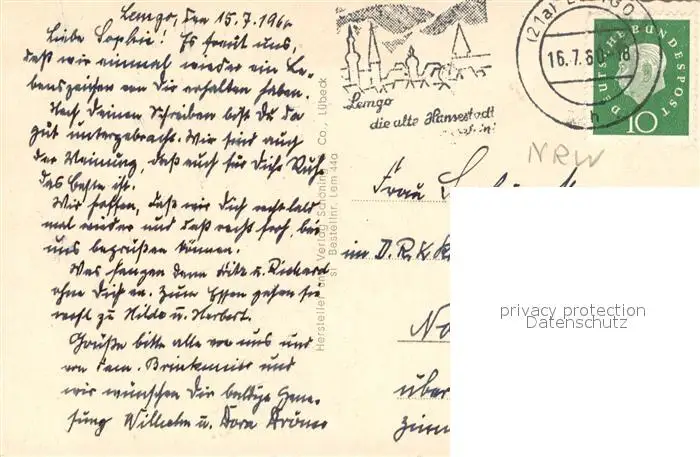 Lemgo, den 15.7.1960
Liebe Sophie! Es freut uns,
daß wir einmal wieder ein Le-
benszeichen von Dir erhalten haben.
Nach Deinem Schreiben bist Du da
gut untergebracht. Wir sind auch
der Meinung, daß auch für Dich Ruhe
das beste ist.
Wir hoffen, daß wir Dich recht bald
mal wieder und daß recht froh, bei
uns begrüßen können.
Was fangen denn Fritz u. Richard
ohne Dich an. Zum Essen gehen sie
recht zu Hilde u. Herbert.
Grüße bitte alle von uns und
von Fam. Brinkmeier und
wir wünschen Dir baldige Gene-
sung Wilhelm u. Dora
Hersteller und Verlag Schöning & Co., Lübeck
Bestellnr. Lem 440
Lemgo
die alte Hansestadt
(21a) LEMGO
16.7.60
h
DEUTSCHE BUNDESPOST
10
NRW
Frau
im D.R.K.
über
privacy protection
Datenschutz